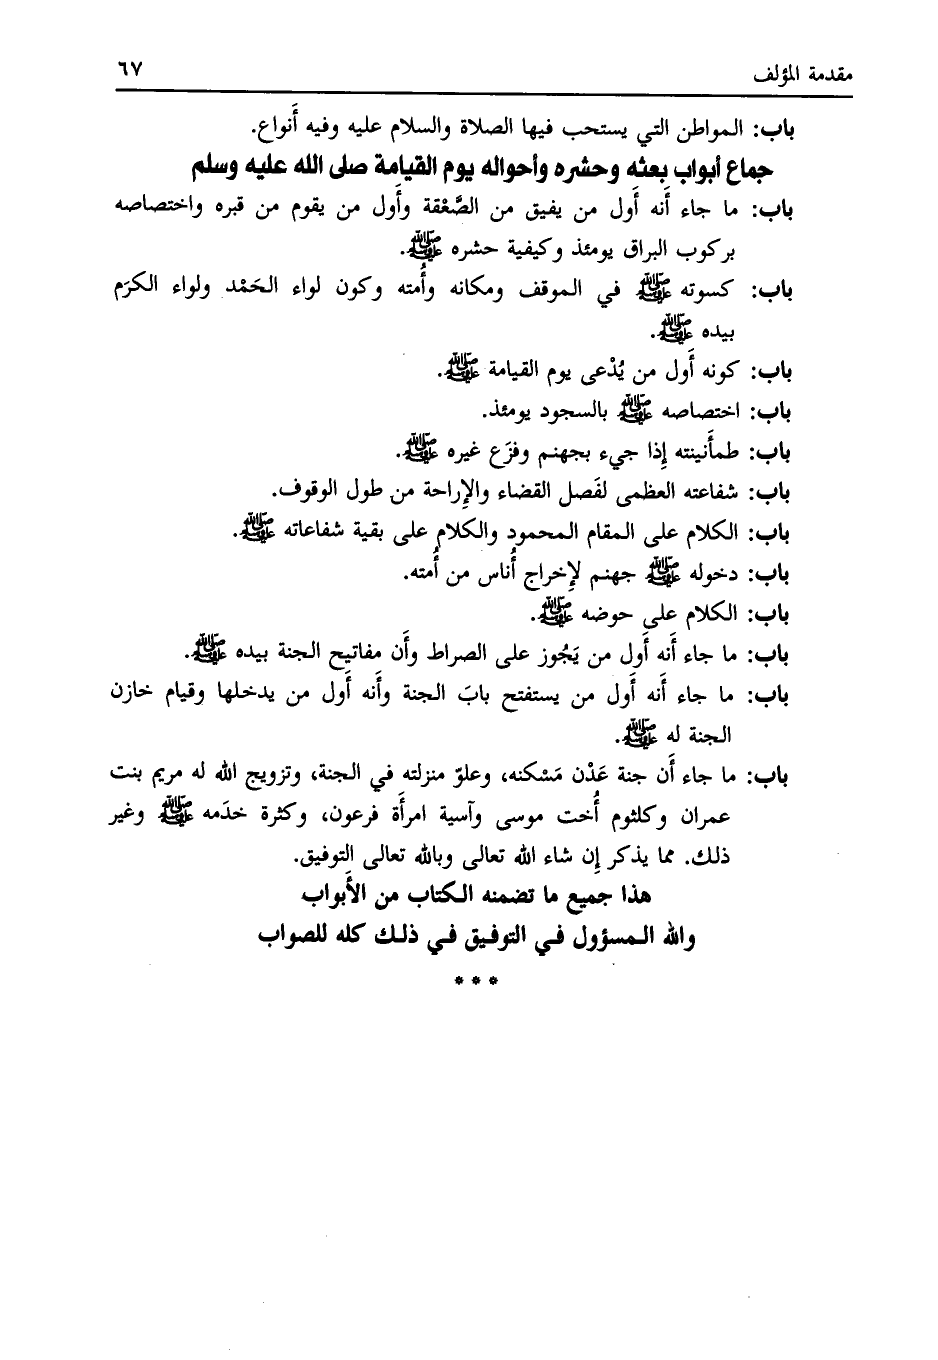 مقدمة المؤلف ٦٧
باب: المواطن التي يستحب فيها الصلاة والسلام عليه وفيه أنواع.
جماع أبواب بعثه وحشره وأحواله يوم القيامة صلى الله عليه وسلم
باب: ما جاء أنه أول من يفيق من الصَّعْقة وأول من يقوم من قبره واختصاصه
بركوب البراق يومئذ وكيفية حشره ﷺ.
باب: كسوته ﷺ في الموقف ومكانه وأُمته وكون لواء الحَمْد ولواء الكرَم
بيده ﷺ.
باب: كونه أول من يُدْعى يوم القيامة ﷺ.
باب: اختصاصه ﷺ بالسجود يومئذ.
باب: طمأنينته إذا جيء بجهنم وفزَع غيره ﷺ.
باب: شفاعته العظمى لفَصل القضاء والإراحة من طول الوقوف.
باب: الكلام على المقام المحمود والكلام على بقية شفاعاته ﷺ.
باب: دخوله ﷺ جهنم لإخراج أُناس من أُمته.
باب: الكلام على حوضه ﷺ.
باب: ما جاء أنه أول من يَجُوز على الصراط وأن مفاتيح الجنة بيده ﷺ.
باب: ما جاء أنه أول من يستفتح بابَ الجنة وأنه أول من يدخلها وقيام خازن
الجنة له ﷺ.
باب: ما جاء أن جنة عَدْن مَسْكنه، وعلوّ منزلته في الجنة، وتزويج الله له مريم بنت
عمران وكلثوم أُخت موسى وآسية امرأة فرعون، وكثرة خدَمه ﷺ وغير
ذلك. مما يذكر إن شاء الله تعالى وبالله تعالى التوفيق.
هذا جميع ما تضمنه الكتاب من الأبواب
والله المسؤول في التوفيق في ذلك كله للصواب
* * *